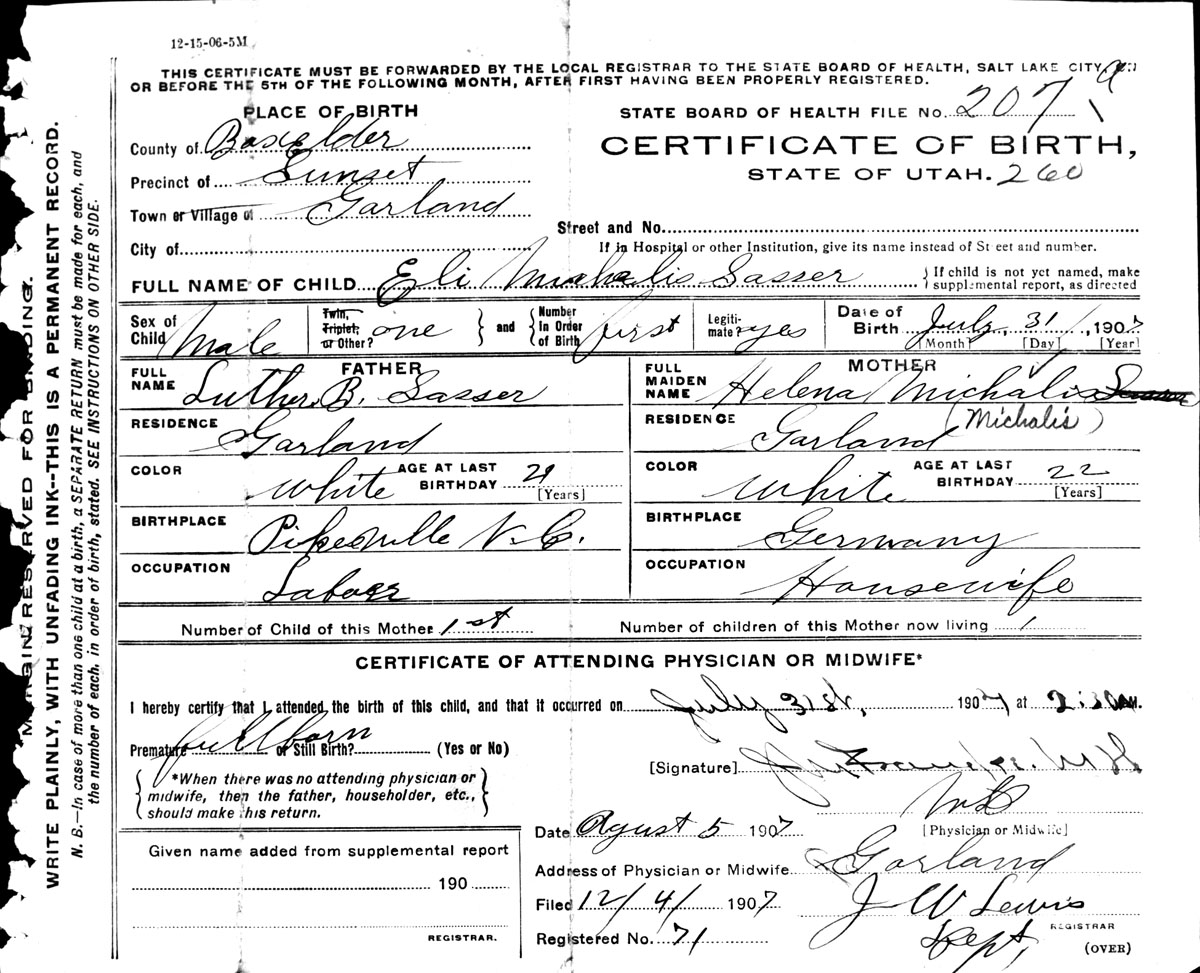 12-15-06-5M
THIS CERTIFICATE MUST BE FORWARDED BY THE LOCAL REGISTRAR TO THE STATE BOARD OF HEALTH, SALT LAKE CITY,
OR BEFORE THE 5TH OF THE FOLLOWING MONTH, AFTER FIRST HAVING BEEN PROPERLY REGISTERED.
PLACE OF BIRTH
STATE BOARD OF HEALTH FILE No. 207
County of Boxelder
CERTIFICATE OF BIRTH,
Precinct of Sunset
STATE OF UTAH. 260
Town or Village of Garland
Street and No.
City of
If in Hospital or other Institution, give its name instead of Street and number.
FULL NAME OF CHILD Eli Michalis Sasser
{ If child is not yet named, make
supplemental report, as directed
Sex of Child Male
Twin, Triplet, or Other? one } and { Number in Order of Birth first
Legiti-mate? yes
Date of Birth July 31, 1907
[Month] [Day] [Year]
FATHER
FULL NAME Luther B. Sasser
RESIDENCE Garland
COLOR White AGE AT LAST BIRTHDAY
[Years]
BIRTHPLACE Pikeville N.C.
OCCUPATION
MOTHER
FULL MAIDEN NAME Helena Michalis
(Michalis)
RESIDENCE Garland
COLOR White AGE AT LAST BIRTHDAY 22
[Years]
BIRTHPLACE Germany
OCCUPATION Housewife
Number of Child of this Mother 1st Number of children of this Mother now living 1
CERTIFICATE OF ATTENDING PHYSICIAN OR MIDWIFE*
I hereby certify that I attended the birth of this child, and that it occurred on July 31st, 1907 at M.
Premature or Still Birth? (Yes or No)
full born
[Signature]
{ *When there was no attending physician or
midwife, then the father, householder, etc.,
should make this return. }
[Physician or Midwife]
Date Agust 5 1907
Given name added from supplemental report
190
REGISTRAR.
Address of Physician or Midwife Garland
Filed 12/4/ 1907 J W Lewis
REGISTRAR
Registered No. 71 Dept,
(OVER)
MARGIN RESERVED FOR BINDING.
WRITE PLAINLY, WITH UNFADING INK--THIS IS A PERMANENT RECORD.
N. B.—In case of more than one child at a birth, a SEPARATE RETURN must be made for each, and
the number of each, in order of birth, stated. SEE INSTRUCTIONS ON OTHER SIDE.